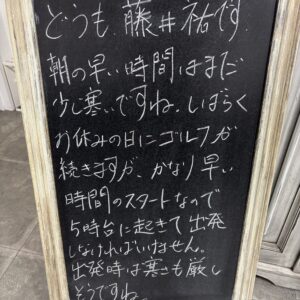 どうも 藤井祐です
朝の早い時間はまだ
少し寒いですね。しばらく
お休みの日にゴルフが
続きますが、かなり早い
時間のスタートなので
5時台に起きて出発
しなければいけません。
出発時は寒さも厳し
そうですね。